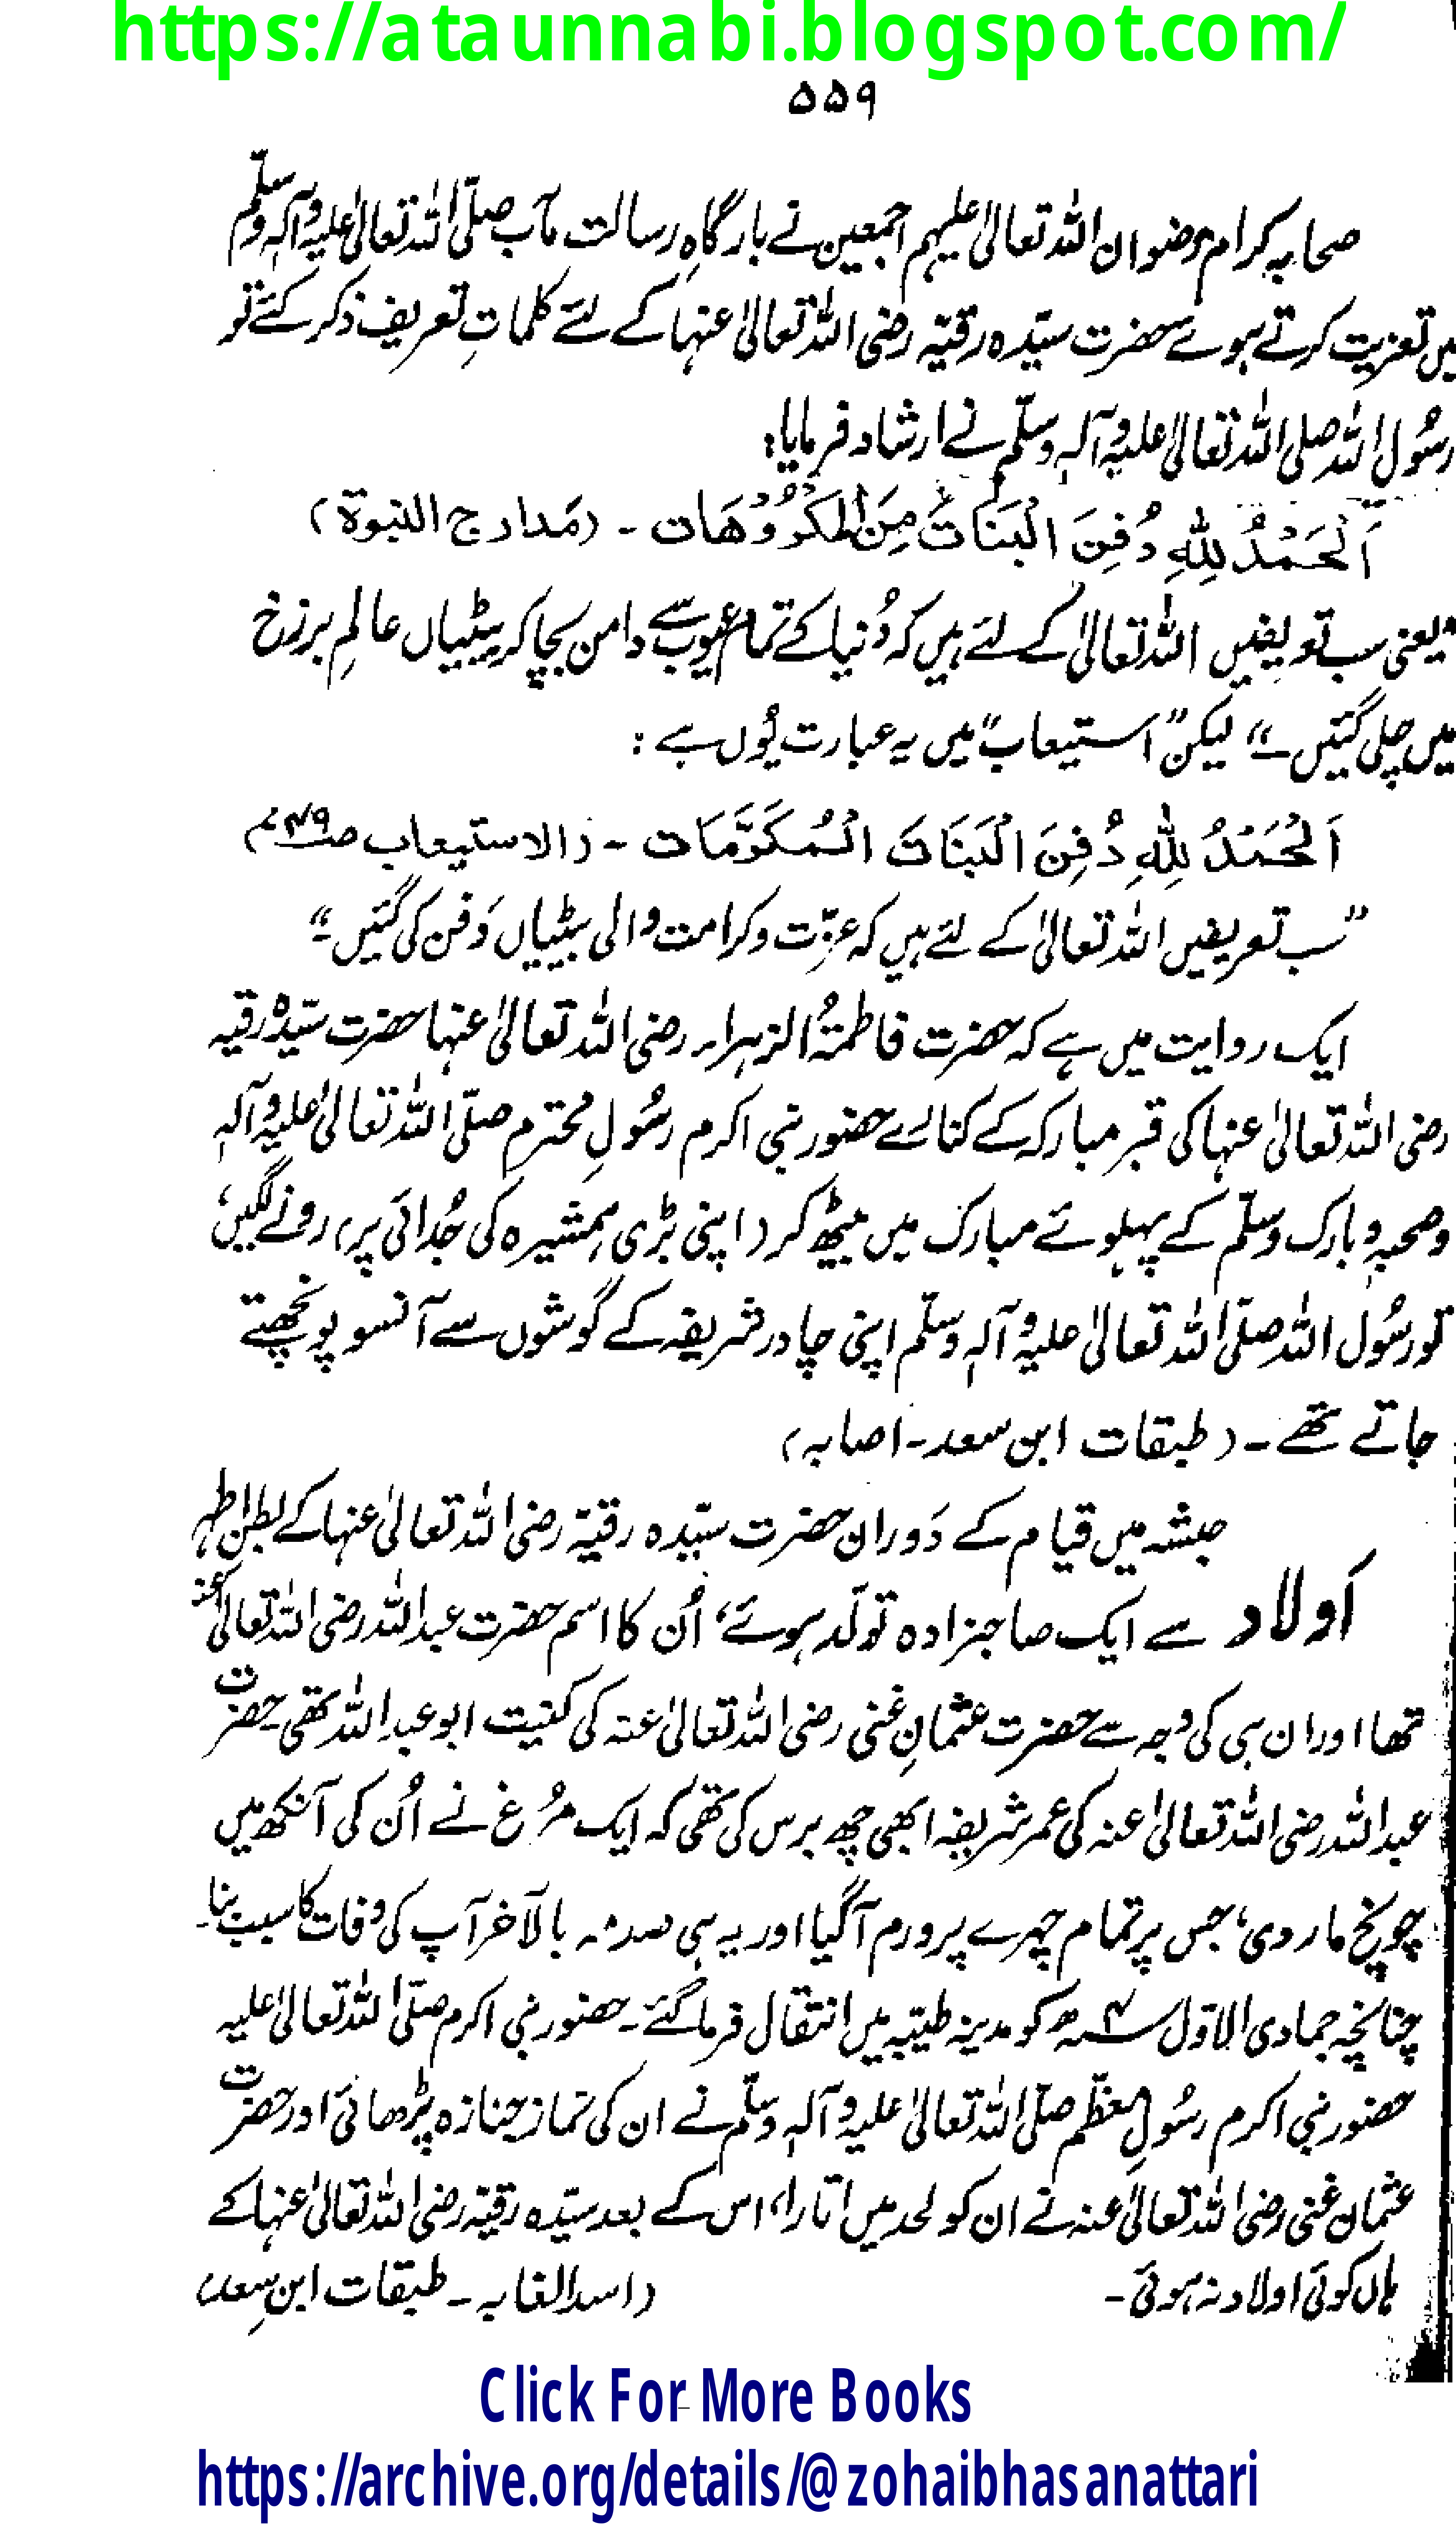 https://ataunnabi.blogspot.com/
۵۵۹
صحابہ کرام رضوان اللہ تعالیٰ علیہم اجمعین نے بارگاہِ رسالت مآب صلّی اللہ تعالیٰ علیہ وآلہٖ وسلّم
میں تعزیت کرتے ہوئے حضرت سیّدہ رقیّہ رضی اللہ تعالیٰ عنہا کے لئے کلماتِ تعریف ذکر کئے تو
رسُول اللہ صلی اللہ تعالیٰ علیہ وآلہٖ وسلّم نے ارشاد فرمایا:
اَلْحَمْدُ لِلّٰهِ دُفِنَ الْبَنَاتُ مِنَ الْمَكْرُوْهَات ۔ (مَدارج النبوة)
"یعنی سب تعریفیں اللہ تعالیٰ کے لئے ہیں کہ دُنیا کے تمام عیوب سے دامن بچا کر بیٹیاں عالمِ برزخ
میں چلی گئیں۔" لیکن "استیعاب" میں یہ عبارت یُوں ہے :
اَلْحَمْدُ لِلّٰهِ دُفِنَ الْبَنَاتَ الْمُكَرَّمَات ۔ (الاستیعاب ص۷۴۹)
"سب تعریفیں اللہ تعالیٰ کے لئے ہیں کہ عزّت و کرامت والی بیٹیاں دَفن کی گئیں۔"
ایک روایت میں ہے کہ حضرت فاطمۃُ الزہراء رضی اللہ تعالیٰ عنہا حضرت سیّدہ رقیہ
رضی اللہ تعالیٰ عنہا کی قبر مبارکہ کے کنارے حضور نبی اکرم رسُولِ محترم صلّی اللہ تعالیٰ علیہ وآلہٖ
وصحبہٖ وبارک وسلّم کے پہلوئے مبارک میں بیٹھ کر (اپنی بڑی ہمشیرہ کی جُدائی پر) رونے لگیں،
تو رسُول اللہ صلّی اللہ تعالیٰ علیہ وآلہٖ وسلّم اپنی چادر شریفہ کے گوشوں سے آنسو پونچھتے
جاتے تھے۔ (طبقات ابن سعد۔اصابہ)
حبشہ میں قیام کے دَوران حضرت سیّدہ رقیّہ رضی اللہ تعالیٰ عنہا کے بطنِ اطہر
اَولاد سے ایک صاحبزادہ تولّد ہوئے، اُن کا اسم حضرت عبداللہ رضی اللہ تعالیٰ عنہ
تھا اور ان ہی کی وجہ سے حضرت عثمانِ غنی رضی اللہ تعالیٰ عنہ کی کنیت ابو عبداللہ تھی۔ حضرت
عبداللہ رضی اللہ تعالیٰ عنہ کی عمر شریفہ ابھی چھ برس کی تھی کہ ایک مُرغ نے اُن کی آنکھ میں
چونچ مار دی، جس پر تمام چہرے پر ورم آگیا اور یہ ہی صدمہ بالآخر آپ کی وفات کا سبب بنا۔
چنانچہ جمادی الاوّل ۴ھ کو مدینہ طیّبہ میں انتقال فرما گئے۔ حضور نبی اکرم صلّی اللہ تعالیٰ علیہ
حضور نبی اکرم رسُولِ معظّم صلّی اللہ تعالیٰ علیہ وآلہٖ وسلّم نے ان کی نماز جنازہ پڑھائی اور حضرت
عثمان غنی رضی اللہ تعالیٰ عنہ نے ان کو لحد میں اتارا، اس کے بعد سیّدہ رقیّہ رضی اللہ تعالیٰ عنہا کے
ہاں کوئی اولاد نہ ہوئی۔ (اسد الغابہ ۔ طبقات ابنِ سعد)
Click For More Books
https://archive.org/details/@zohaibhasanattari